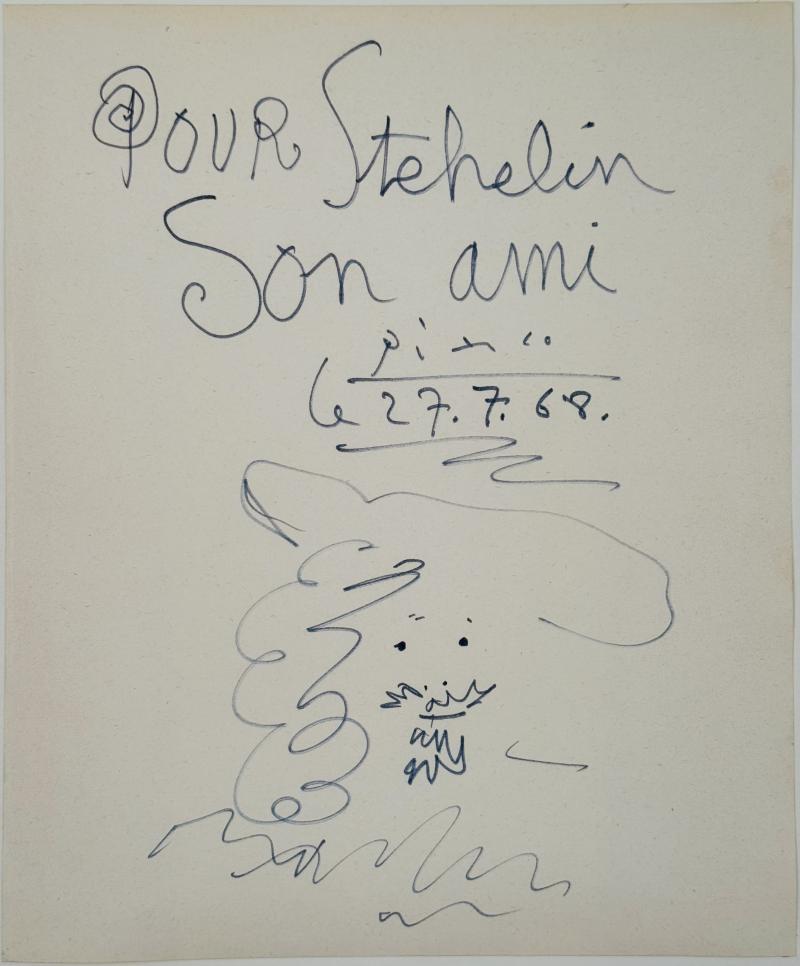 POUR Stehelin
Son ami
le 27.7.68.